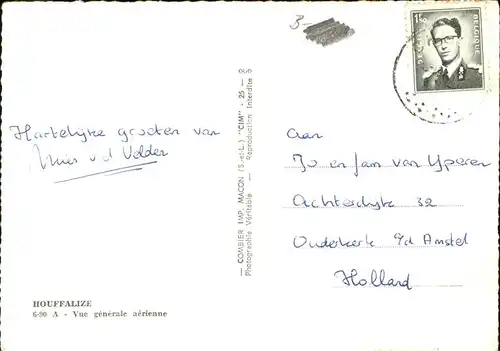 3-
1F50
BELGIQUE
Hartelijke groeten van
v.d Velden
Aan
Jo en Jan van Yperen
Achterdijk 32
Ouderkerk a/d Amstel
Holland
— COMBIER IMP. MACON (S.-et-L.) "CIM" - 25 -
Photographie Véritable — Reproduction Interdite
HOUFFALIZE
6-90 A - Vue générale aérienne